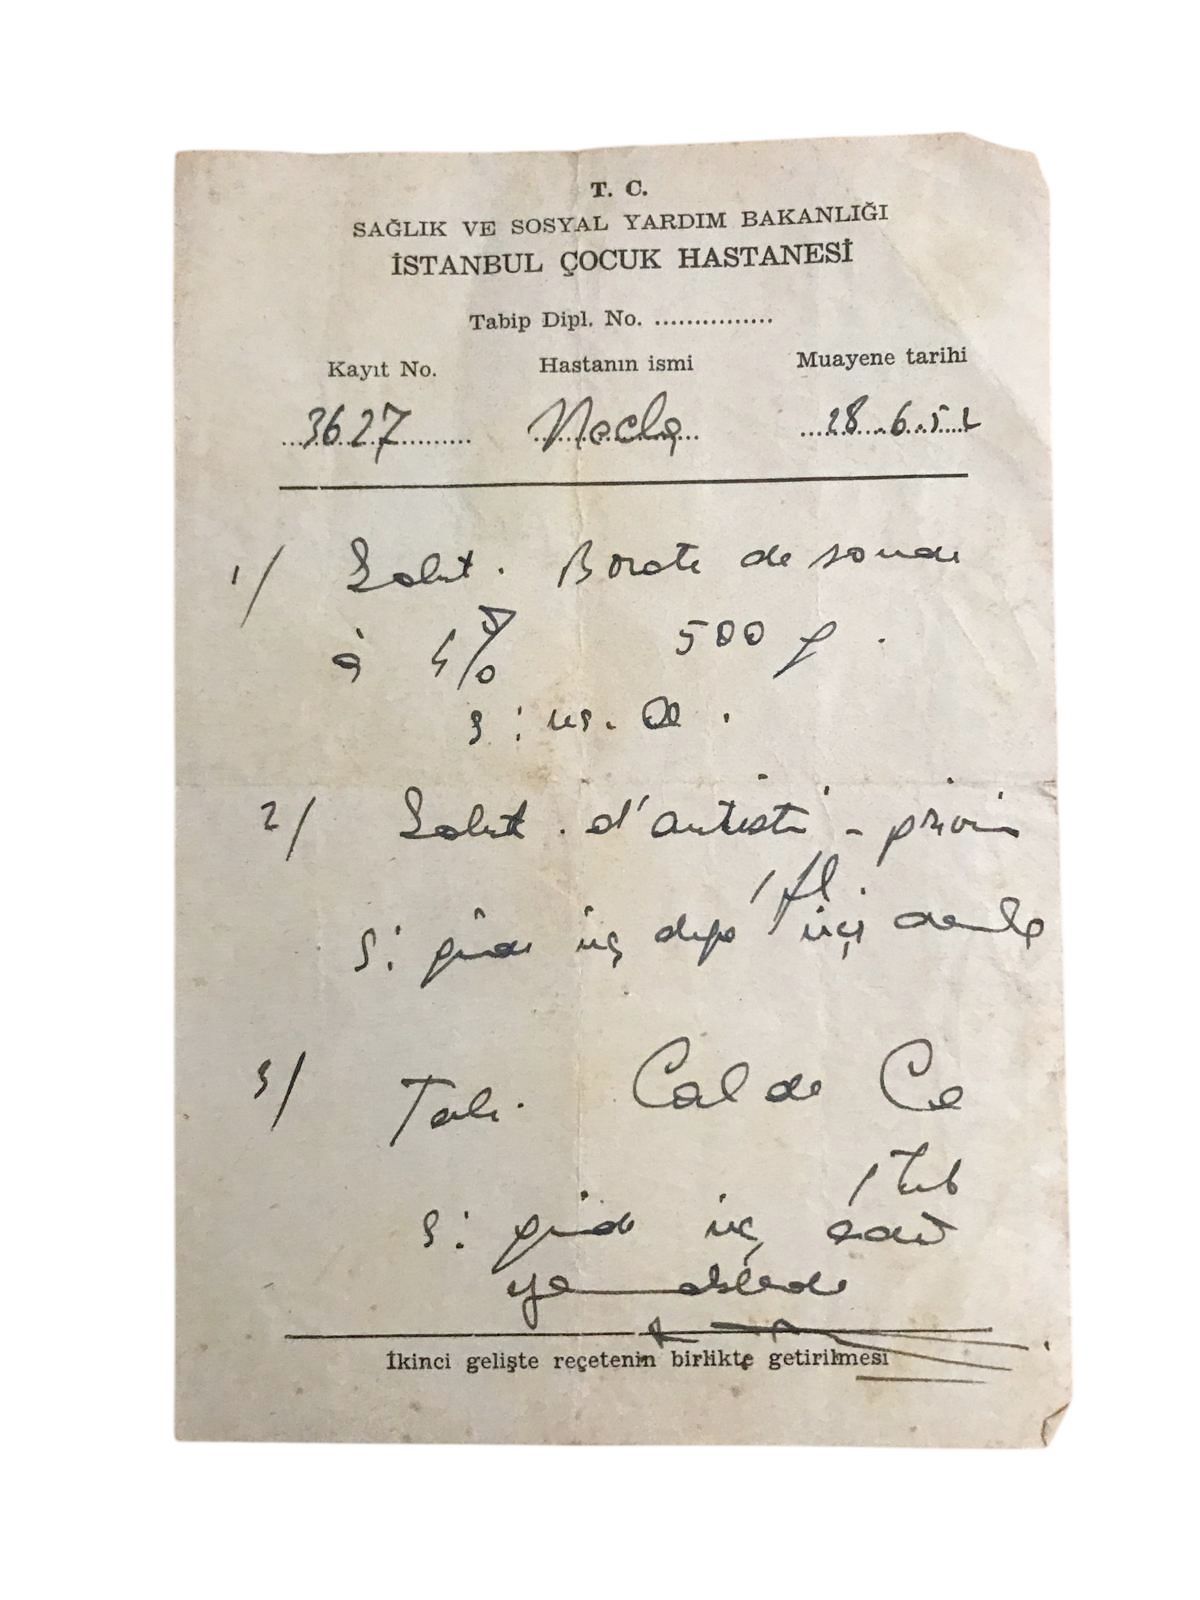 T. C.
SAĞLIK VE SOSYAL YARDIM BAKANLIĞI
İSTANBUL ÇOCUK HASTANESİ
Tabip Dipl. No. ...............
Kayıt No. Hastanın ismi Muayene tarihi
3627 Necla 28.6.52
1/ Solut. Borate de soude
à % 500 g.
S: us.
2/ Solut. d'antisti-privin
1 fl.
S: günde üç defa
3/ Tab. Cal de Ce
1 Tub
S: günde üç adet
yemeklerde
İkinci gelişte reçetenin birlikte getirilmesi